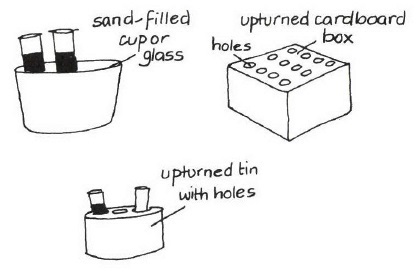 sand-filled
cup or
glass
upturned cardboard
box
holes
upturned tin
with holes